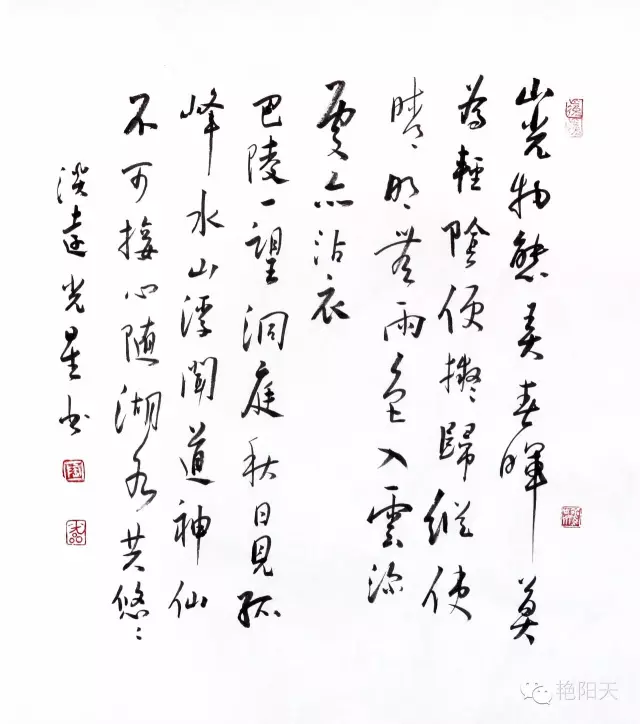 山光物態弄春暉莫
為輕陰便擬歸縱使
晴明無雨色入雲深
處亦沾衣
巴陵一望洞庭秋日見孤
峰水山浮聞道神仙
不可接心隨湖水共悠〻
淡遠光星書
艳阳天